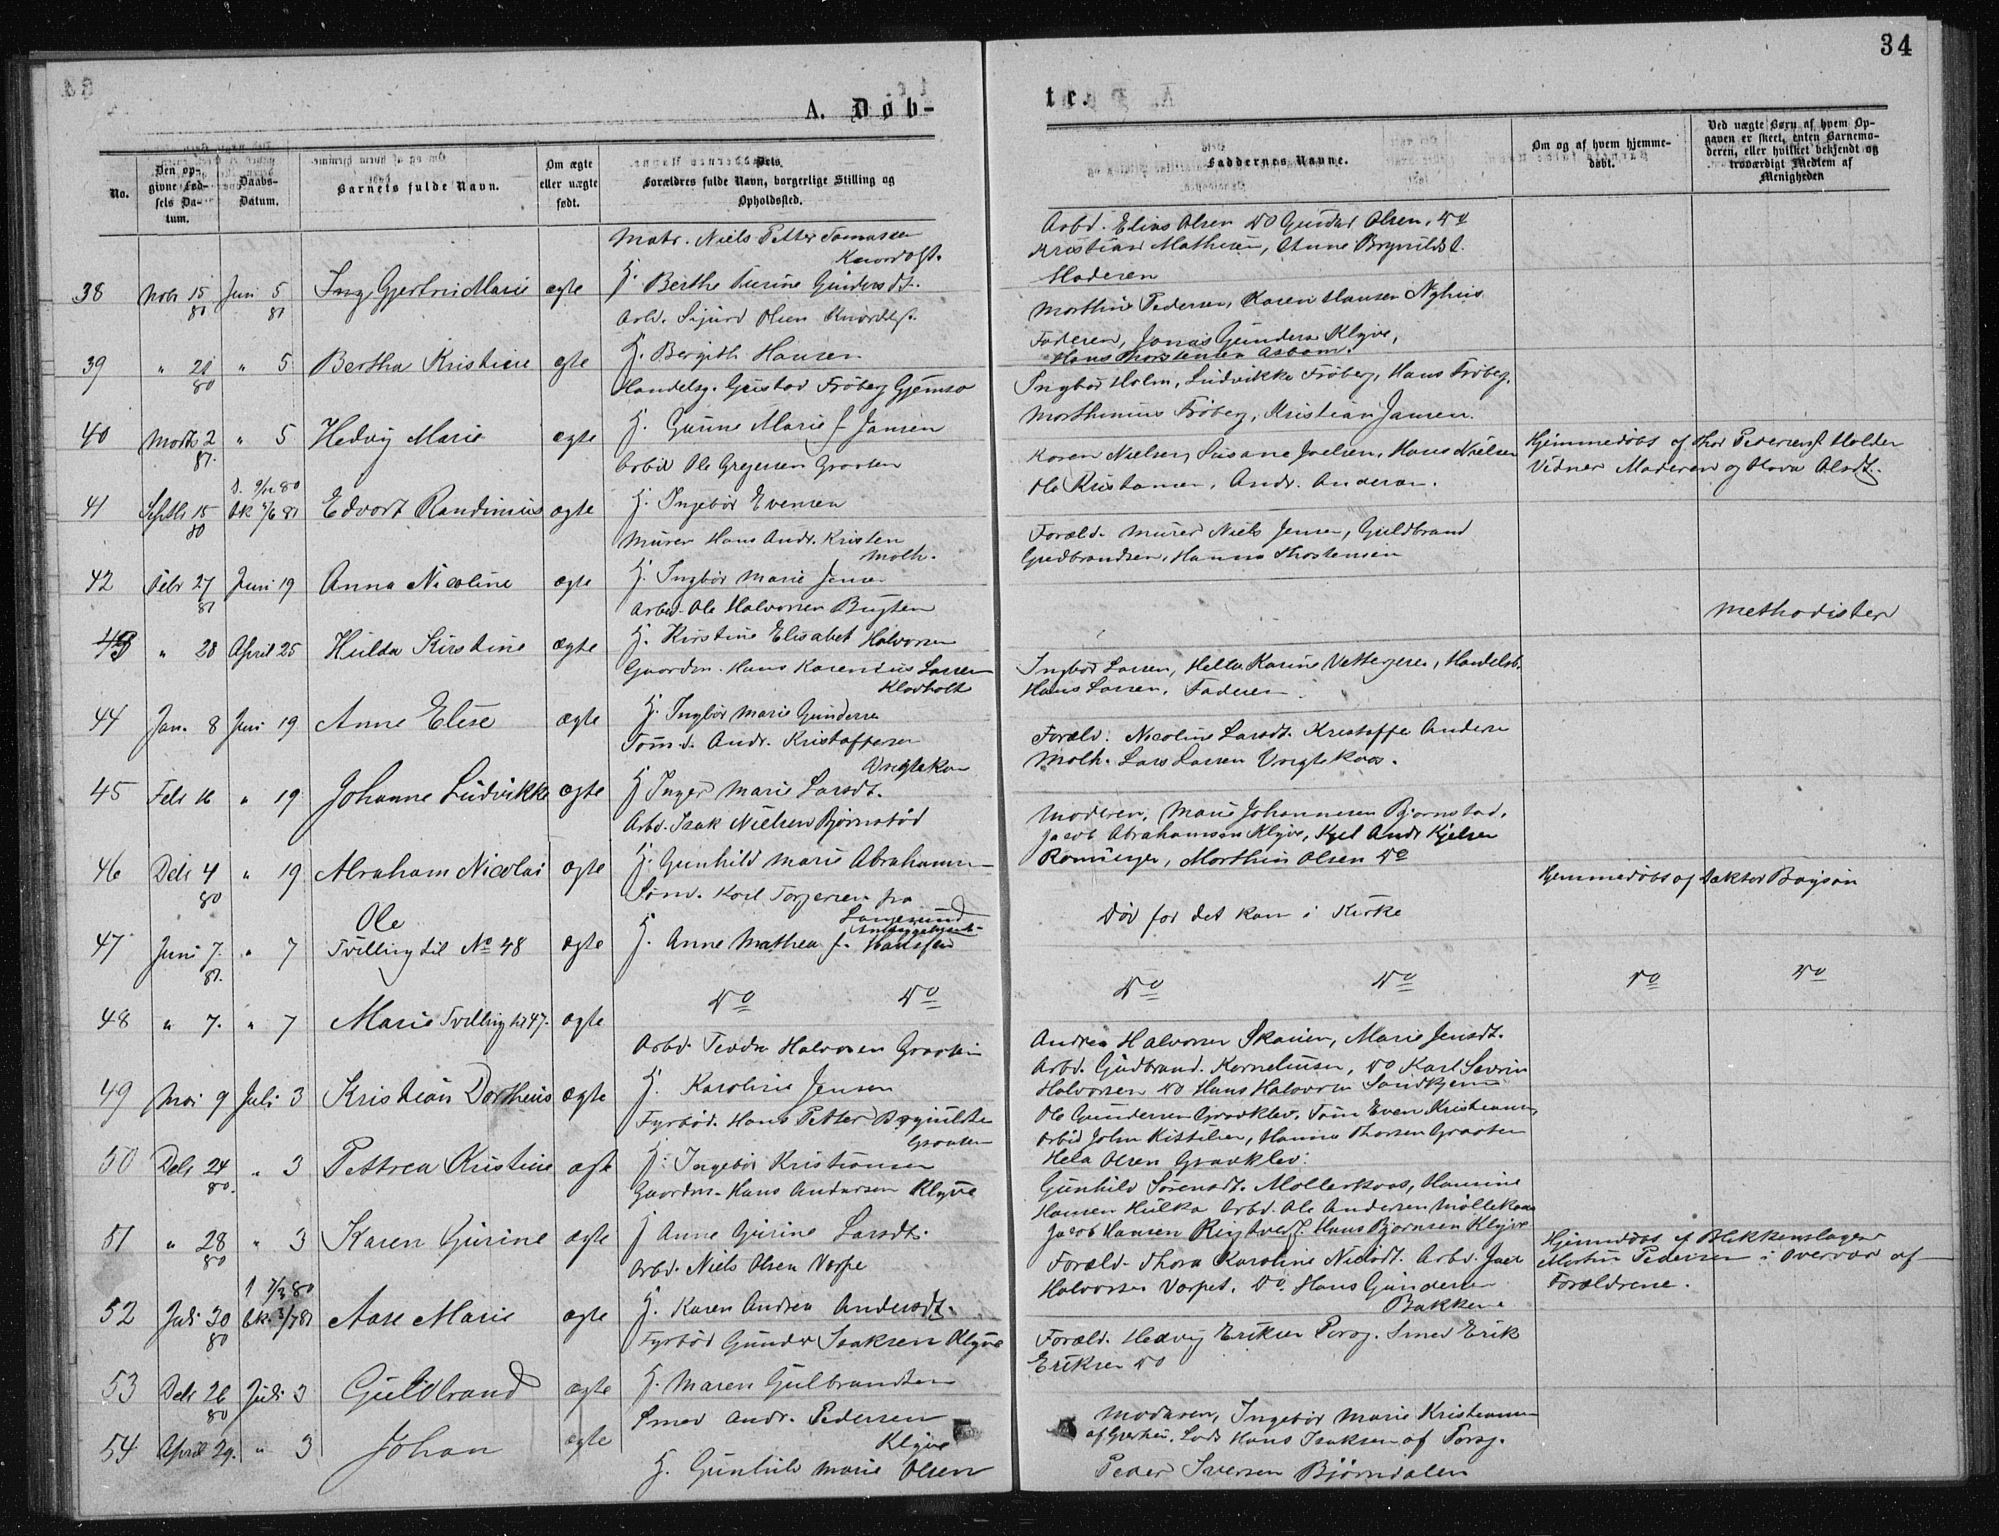 34
A. Døb-
te.
No.
Den op-
givne Fød-
sels Da-
tum.
Daabs-
Datum.
Barnets fulde Navn.
Om ægte
eller uægte
født.
Dets
Forældres fulde Navn, borgerlige Stilling og
Opholdssted.
Faddernes Navne.
Om og af hvem hjemme-
døbt.
Ved uægte Børn af hvem Op-
gaven er skeet, enten Barnemo-
deren, eller hvilket bekjendt og
troværdigt Medlem af
Menigheden
Matr. Niels Petter Tomassen
38 Nobr 15 81 Juni 5 81 Inga Gjertrin Marie ægte H. Berthe Turine Gundersdt.
Arbd. Elias Olsen Do Gunder Olsen, Do
Kristian Mathisen, Anne Brynildst.
Moderen
Arbd. Sjurd Olsen
39 " 21 80 " 5 Bertha Kristine ægte H. Bergith Hansen
Marthine Pedersen, Karen Hansen Nyhus
Faderen, Jonas Gundersen Klyve,
Hans Thorstensen
Handelsg. Gustav Frøberg Gjemsø
40 Marts 2 81. " 5 Hedvig Marie ægte H. Gunne Marie f. Jansen
Ingbor Holm, Ludvikke Frøberg, Hans Frøberg,
Morthinius Frøberg, Kristian Jansen.
Arbd Ole Gregersen Graaten
41 Septbr 15 80 D. 9/12 80 Bk 5/6 81 Edvart Randinius ægte H. Ingebør Evensen
Karen Nielsen, Susane Joelsen, Hans Nielsen
Ole Kristensen, Andr. Andersen.
Hjemmedøbt af Thor Pedersen Holder
Vidner Moderen og Hava Olsdt.
Murer Hans Andr. Kristen
Molh.
42 Febr 27 81 Juni 19 Anna Nicoline ægte H. Ingbør Marie Jensen
Foræld. Murer Niels Jensen, Guldbrand
Gudbrandsen, Hanna Thorstensen
Arbd. Ole Halvorsen Bugten
43 " 28 April 25 Hulda Kirstine ægte H. Kirstine Elisabet Halvorsen
Methodister
Gaardm. Hans Karenius Larsen
Klovholt
44 Jan. 8 Juni 19 Anne Elise ægte H. Ingbør Marie Gundersen
Ingbor Larsen, Helle Karine Vettergren, Handelsb.
Hans Larsen, Faderen.
Tømd. Andr. Kristoffersen
Vrigtekaa
45 Feb 16 " 19 Johanne Ludvikke ægte H Inger Marie Larsdt.
Foræld. Nicoline Larsdt. Kristoffe Andersen
Molh. Lars Larsen Vrigtekaas.
Arbd. Isak Nielsen Bjørnstød
46 Debr 4 80 " 19 Abraham Nicolai ægte H. Gunhild Marie Abrahamsen
Moderen, Marie Johannesen Bjørnstad,
Jacob Abrahamsen Klyve, Kjel Andr Kjelsen
Rønningen, Morthin Olsen Do
Tømd. Karl Torjersen fra
Langesund
47 Juni 7. 81. " 7 Ole
Tvilling til No 48 ægte H. Anne Mathea f. Hansen
Død før det kom i Kirke
Hjemmedøbt af Doktor Bøyson
48 " 7. " 7 Marie Tvilling til 47. ægte Do Do
Do Do Do Do
Arbd. Tevdr Halvorsen Graaten
49 Mai 9 Juli 3 Kristian Dortheus ægte H. Karoline Jensen
Andrea Halvorsen Skauen, Marie Jensdt.
Arbd. Gudbrand. Korneliusen, Do Karl Severin
Halvorsen Do Hans Halvorsen Sandkjern
Fyrbød. Hans Petter Brynildsen
Graaten
50 Debr 24 80. " 3 Pettrea Kristine ægte H. Ingebør Kristiansen
Ole Gundersen Graaklev. Tøm Even Kristiansen,
Arbd John Kittilsen, Hanna Thorsen Graaten
Hela Olsen Graaklev.
Gaardm. Hans Andersen Klyve
51 " 28 80 " 3 Karen Gurine ægte H Anne Gurine Larsdt.
Gunhild Sørensdt. Møllerkaas, Hansine
Hansen Hulka Arbd. Ole Andersen Møllekaas
Jacob Hansen Ringtveds. Hans Bjørnsen Klyve
Arbd. Niels Olsen Vorpe
52 Juli 30 80 Bk. 3/7 81 Aase Marie ægte H. Karen Andrea Andersdt.
Foræld. Thora Karoline Nielsdt. Arbd. Joen
Halvorsen Vorpet. Do. Hans Gundersen
Bakken
Hjemmedøbt af Blikkenslager
Morten Pedersen i Overvær af
Forældrene.
Fyrbød Gunder Isaksen Klyve
53 Debr 26 80 Juli 3 Guldbrand ægte H. Maren Gulbrandsen
Foræld. Hedvig Eriksen Porsg. Smed Erik
Eriksen Do
Smed Andr. Pedersen
Klyve
54 April 29. " 3 Johan ægte H. Gunhild Marie Olsen
Moderen, Ingebør Marie Kristiansen
af Gjerpen. Lods Hans Isaksen af Porsg.
Peder Iversen Bjørndalen